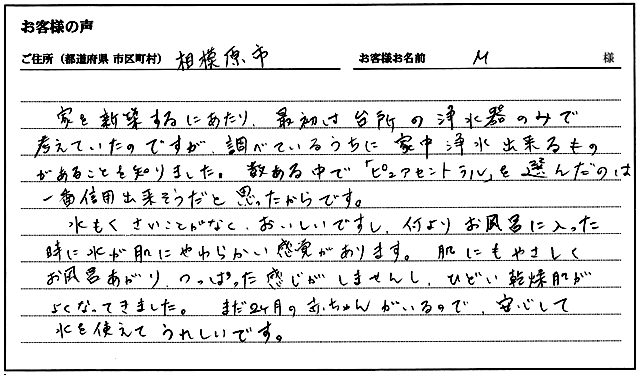 お客様の声
ご住所（都道府県 市区町村） 相模原市 お客様お名前 M 様
家を新築するにあたり、最初は台所の浄水器のみで
考えていたのですが、調べているうちに家中浄水出来るもの
があることを知りました。数ある中で「ピュアセントラル」を選んだのは
一番信用出来そうだと思ったからです。
水もくさいことがなく、おいしいですし、何よりお風呂に入った
時に水が肌にやわらかい感覚があります。肌にもやさしく
お風呂あがり、つっぱった感じがしませんし、ひどい乾燥肌が
よくなってきました。まだ2ヶ月の赤ちゃんがいるので、安心して
水を使えてうれしいです。